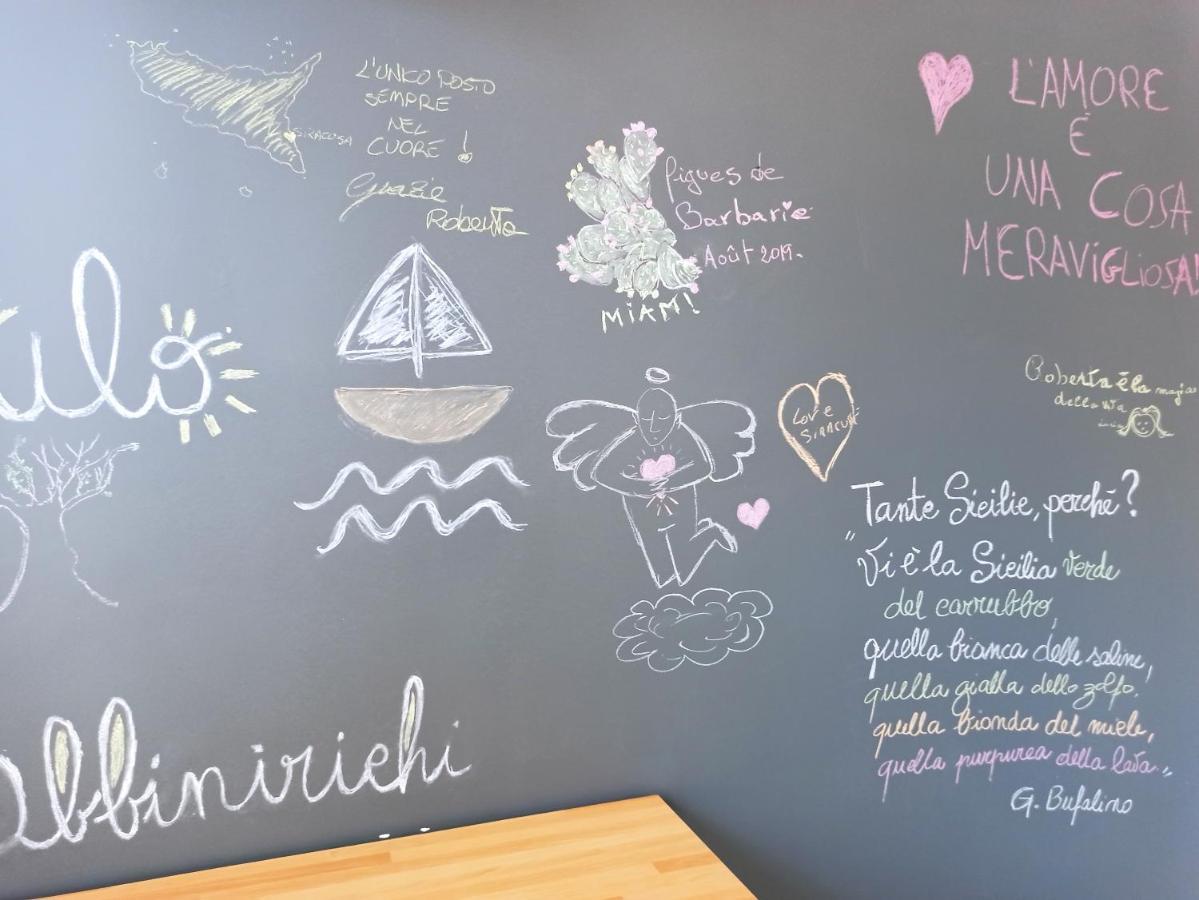 L'UNICO POSTO
SEMPRE
NEL
CUORE!
Grazie
Roberta
SIRACUSA
figues de
Barbarie
Août 2019.
MIAM!
L'AMORE
È
UNA COSA
MERAVIGLIOSA!
Love
SIRACUSA
Roberta è la magia
della vita
Tante Sicilie, perché?
"Vi è la Sicilia verde
del carrubbo,
quella bianca delle saline,
quella gialla dello zolfo,
quella bionda del miele,
quella purpurea della lava."
G. Bufalino
abbinirichi